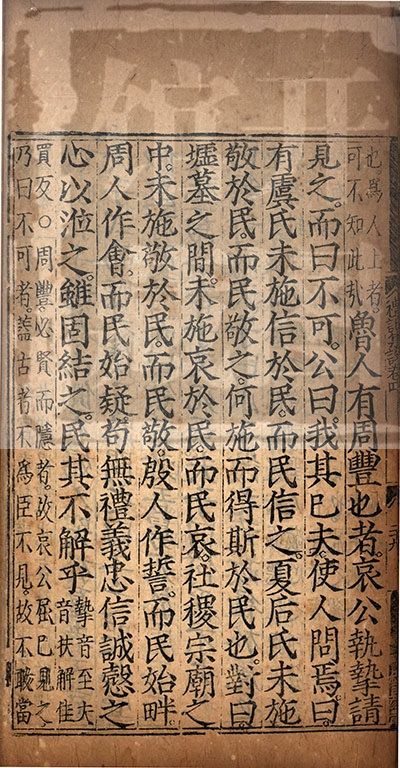 也爲人上者。
可不知此哉
魯人有周豐也者。哀公執摯請
見之。而曰不可。公曰。我其已夫。使人問焉。曰
有虞氏未施信於民。而民信之。夏后氏未施
敬於民。而民敬之。何施而得斯於民也。對曰。
墟墓之間。未施哀於民。而民哀。社稷宗廟之
中。未施敬於民。而民敬。殷人作誓。而民始畔。
周人作會。而民始疑。苟無禮義忠信誠慤之
心以涖之。雖固結之。民其不解乎
摯音至夫
音扶解佳
買反○周豐。必賢而隱者。故哀公屈已見之。
乃曰不可者。蓋古者不爲臣不見。故不敢當